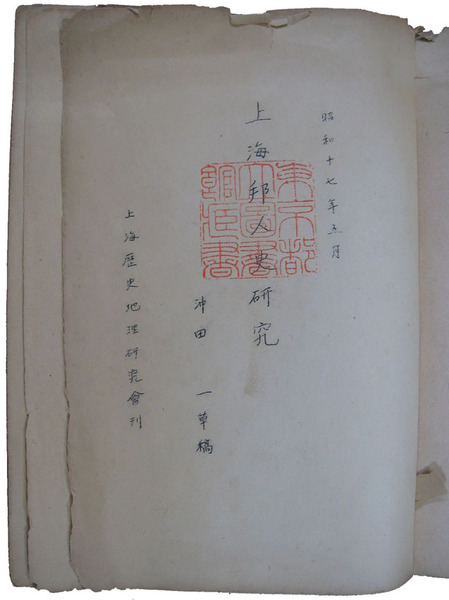 昭和十七年五月
上海邦人史研究
沖田 一草稿
上海歷史地理研究會刊
東京都
立圖書
館藏書